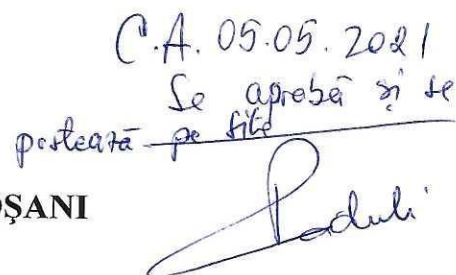 C.A. 05.05.2021
Se aprobă și se
postează pe site
OȘANI